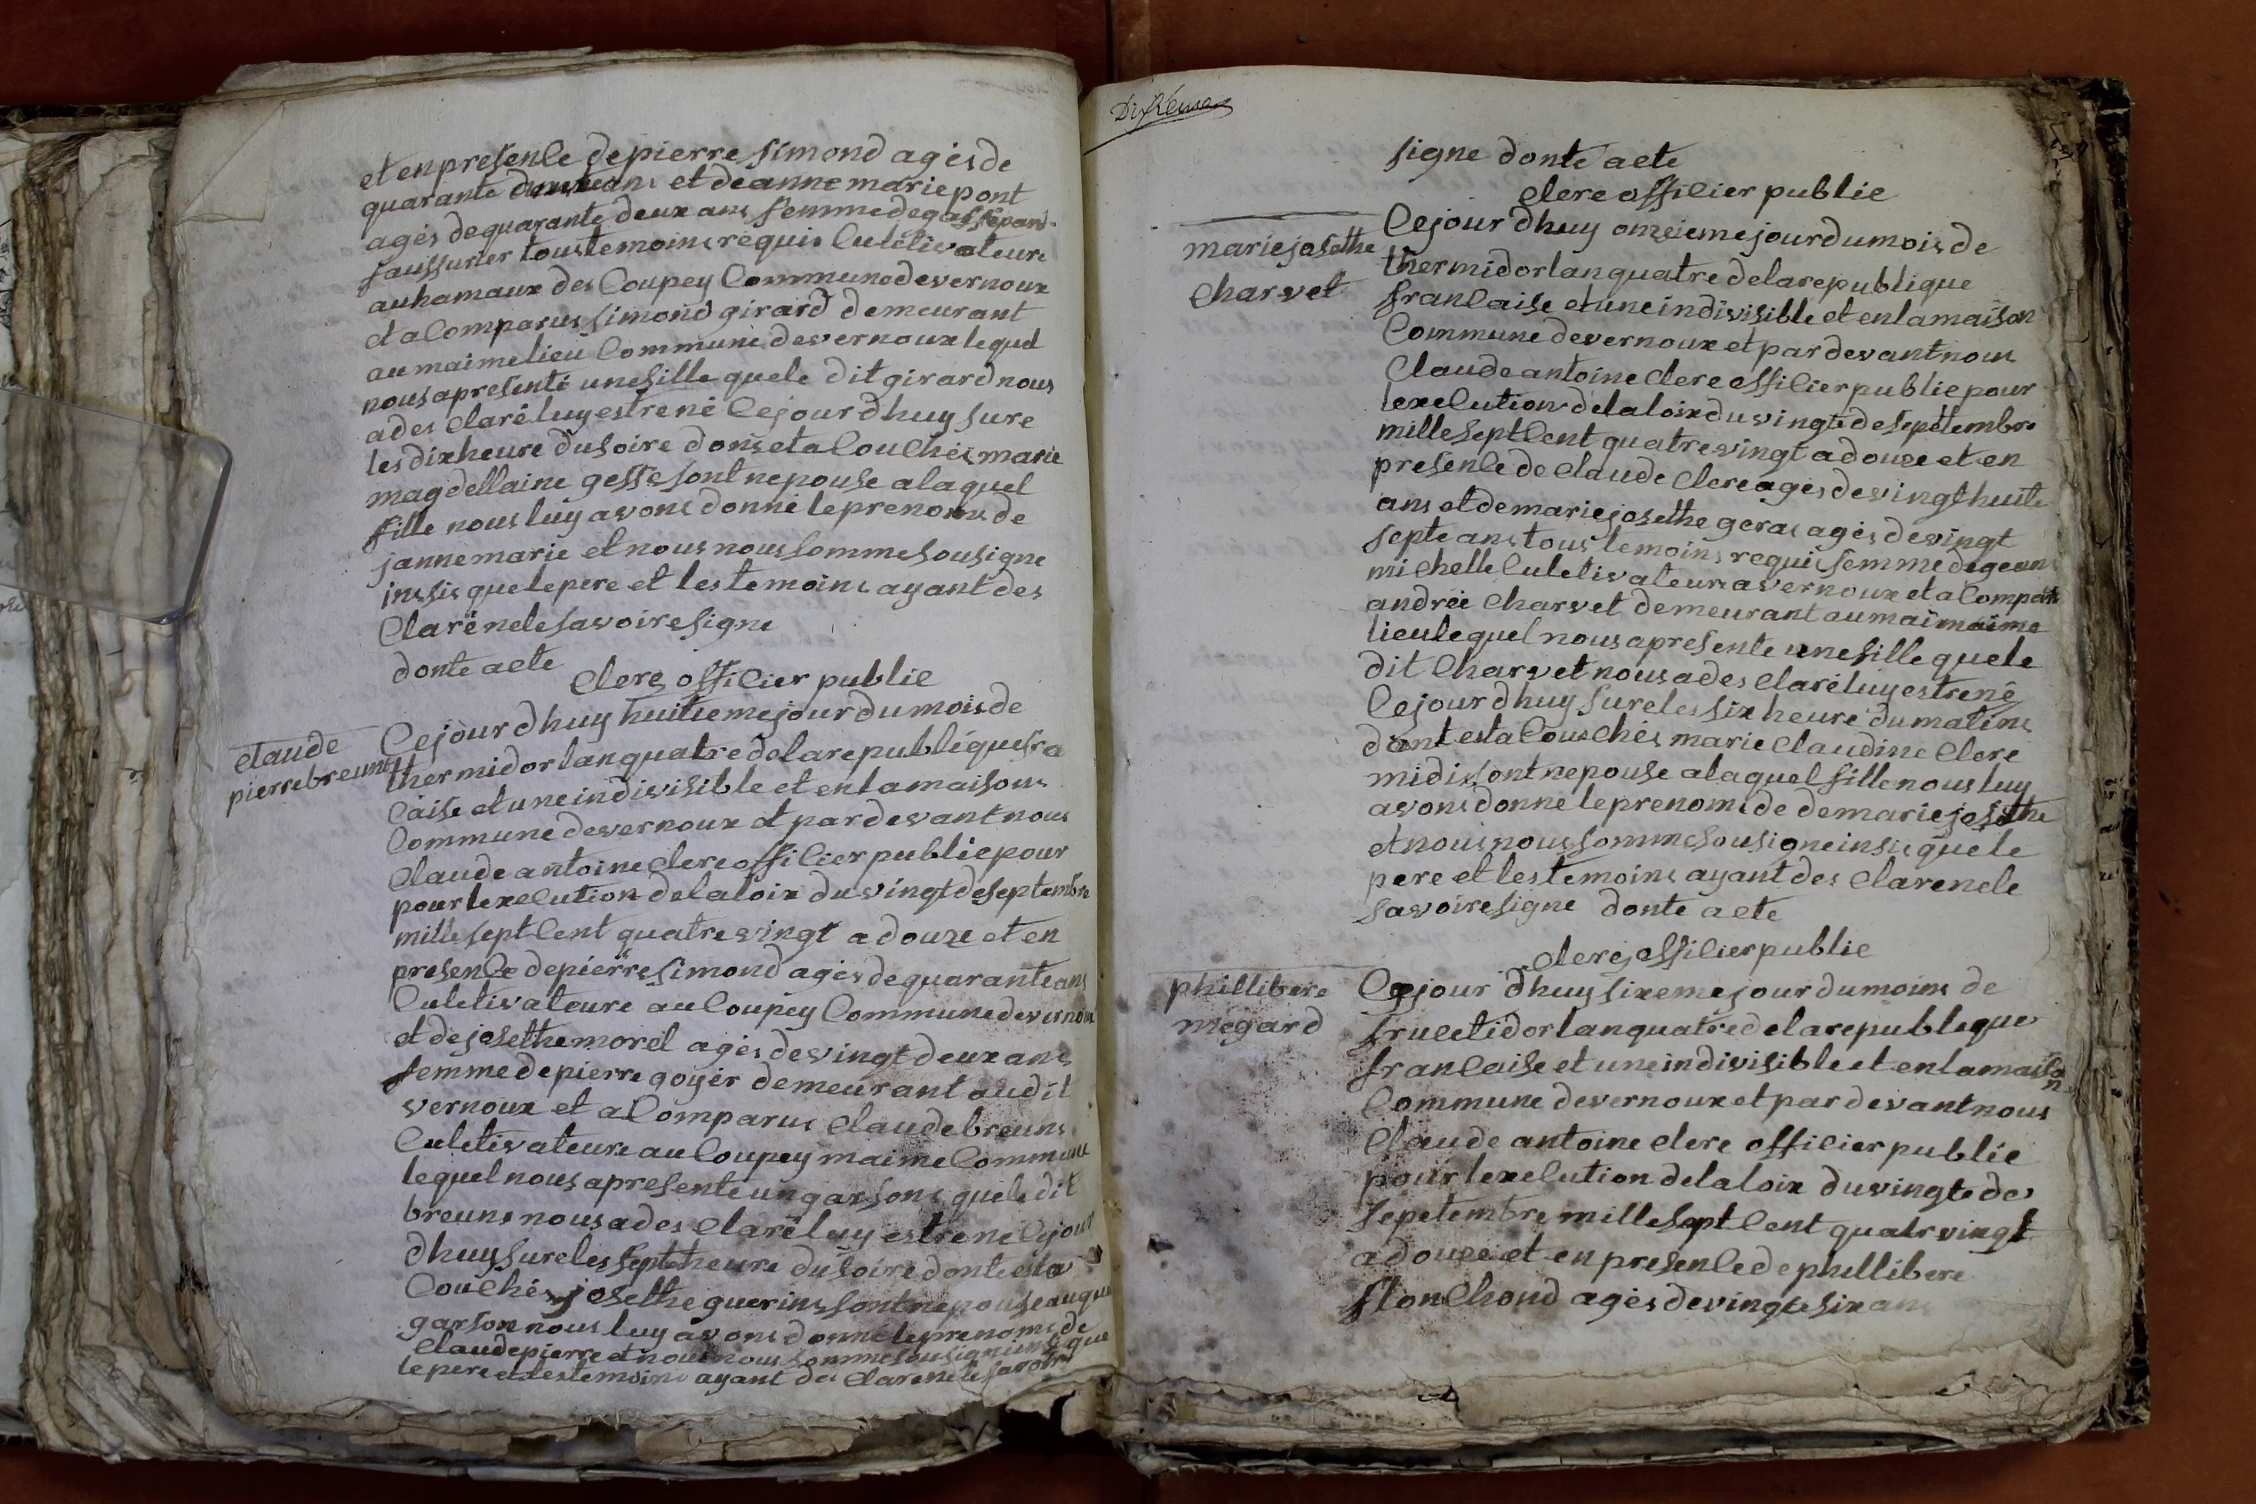 et en presence de pierre simond agés de
quarante ans et de anne marie pont
agés de quarante deux ans femme de
faussurier tous temoins requis culetivateure
au hamaux des Coupey Commune de vernoux
et a Comparus simond girard demeurant
au maime lieu Commune de vernoux lequel
nous apresenté une fille que le dit girard nous
a des claré luy estre né Cejour dhuy sure
les dix heure du soire dons eta Couchés marie
magdellaine gesse sont nepouse a laquel
fille nous luy avons donné le prenoms de
janne marie et nous nous somme sousigne
inssis que le pere et les temoins ayant des
Claré ne le savoire signe
donte acte
Clerc officier public
claude
pierre breuns
Cejour dhuy huitieme jour du mois de
thermidor lan quatre de la republéque fra
caise et une indivisible et en la maisons
Commune de vernoux et par devant nous
Claude antoine clerc officier public pour
pour lexecution de la loix du vingt de septembre
mille sept Cent quatre vingt a douze et en
presence de pierre simond agés de quarante ans
Culetivateure au Coupey Commune de vernoux
et de josethe morel agés de vingt deux ans
femme de pierre goyér demeurant audit
vernoux et a Comparus Claude breuns
Culetivateure au Coupey maime Commune
lequel nous apresente un garsons que le dit
breuns nous a des claré luy estre né Cejour
dhuy sure les sept heure du soire donte esta
Couchés josethe guerins sont nepouse au quel
garson nous luy avons donné le prenoms de
Claude pierre et nous nous somme sousigne ins que
le pere et les temoins ayant des clare ne le savoire
signe donte acte
Clerc officier public
marie josethe
Charvet
Cejour dhuy onzeieme jour du mois de
thermidor lan quatre de la republique
francaise et une indivisible et en la maison
Commune de vernoux et par devant nous
Claude antoine clerc officier public pour
lexecution de la loix du vingte de sepetembre
mille sept Cent quatre vingt a douze et en
presence de Claude Clerc agés de vingt huite
ans et de marie josethe geras agés de vingt
septe ans tous temoins requis femme de
michelle Culetivateure a vernoux et a Compar
andrée Charvet demeurant au mai maime
lieu lequel nous apresente une fille que le
dit Charvet nous a des claré luy estre né
Cejour dhuy sure les six heure du matins
dont esta Couchés marie Claudine Clerc
midi sont nepouse a laquel fille nous luy
avons donne le prenoms de de marie josethe
et nous nous somme sousigne insis que le
pere et les temoins ayant des clare ne le
savoire signe donte acte
Clerc officier public
phillibere
megard
Cejour dhuy sixeme jour du moins de
fruectidor lan quatre de la republeque
francaise et une indivisible et en la maison
Commune de vernoux et par devant nous
Claude antoine clerc officier public
pour lexecution de la loix du vingte de
sepetembre mille sept Cent quatr vingt
a douze et en presence de phillibere
flonchond agés de vingte six ans